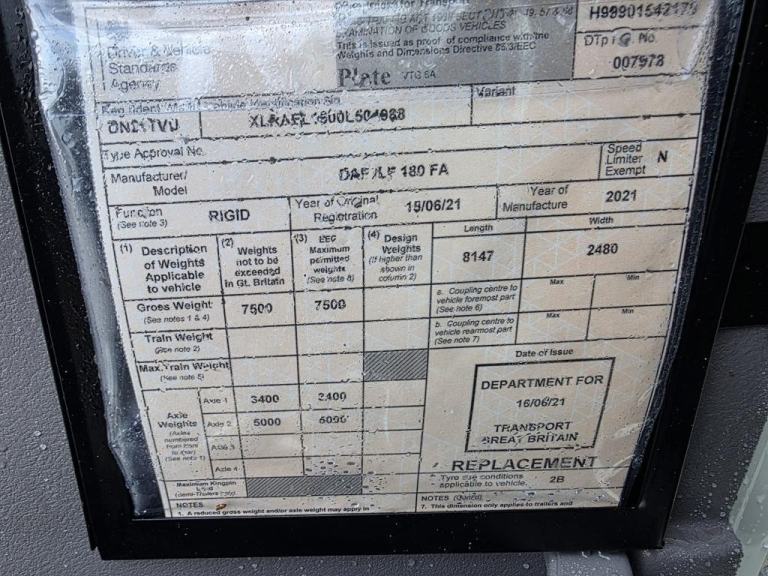 EXAMINATION OF GOODS VEHICLES
This is issued as proof of compliance with the
Weights and Dimensions Directive 85/3/EEC
Plate VTG 6A
DTp No.
007978
Driver & Vehicle
Standards
Agency
Variant
Type Approval No.
Manufacturer/
Model
DAF LF 180 FA
Speed
Limiter
Exempt
N
Function
(See note 3)
RIGID
Year of Original
Registration
15/06/21
Year of
Manufacture
2021
(1) Description
of Weights
Applicable
to vehicle
(2) Weights
not to be
exceeded
in Gt. Britain
(3) EEC
Maximum
permitted
weights
(See note 8)
(4) Design
Weights
(if higher than
shown in
column 2)
Length
8147
Width
2480
Gross Weight
(See notes 1 & 4)
7500
7500
a. Coupling centre to
vehicle foremost part
(See note 6)
Max
Min
b. Coupling centre to
vehicle rearmost part
(See note 7)
Max
Min
Train Weight
(See note 2)
Max. Train Weight
(See note 5)
Date of Issue
DEPARTMENT FOR
16/06/21
TRANSPORT
GREAT BRITAIN
Axle
Weights
(Axles
numbered
from front
to rear)
(See note 1)
Axle 1
3400
Axle 2
5000
Axle 3
Axle 4
REPLACEMENT
Maximum Kingpin
Load
(Semi-Trailers only)
Tyre use conditions
applicable to vehicle.
2B
NOTES
1. A reduced gross weight and/or axle weight may apply in
NOTES
7. This dimension only applies to trailers and